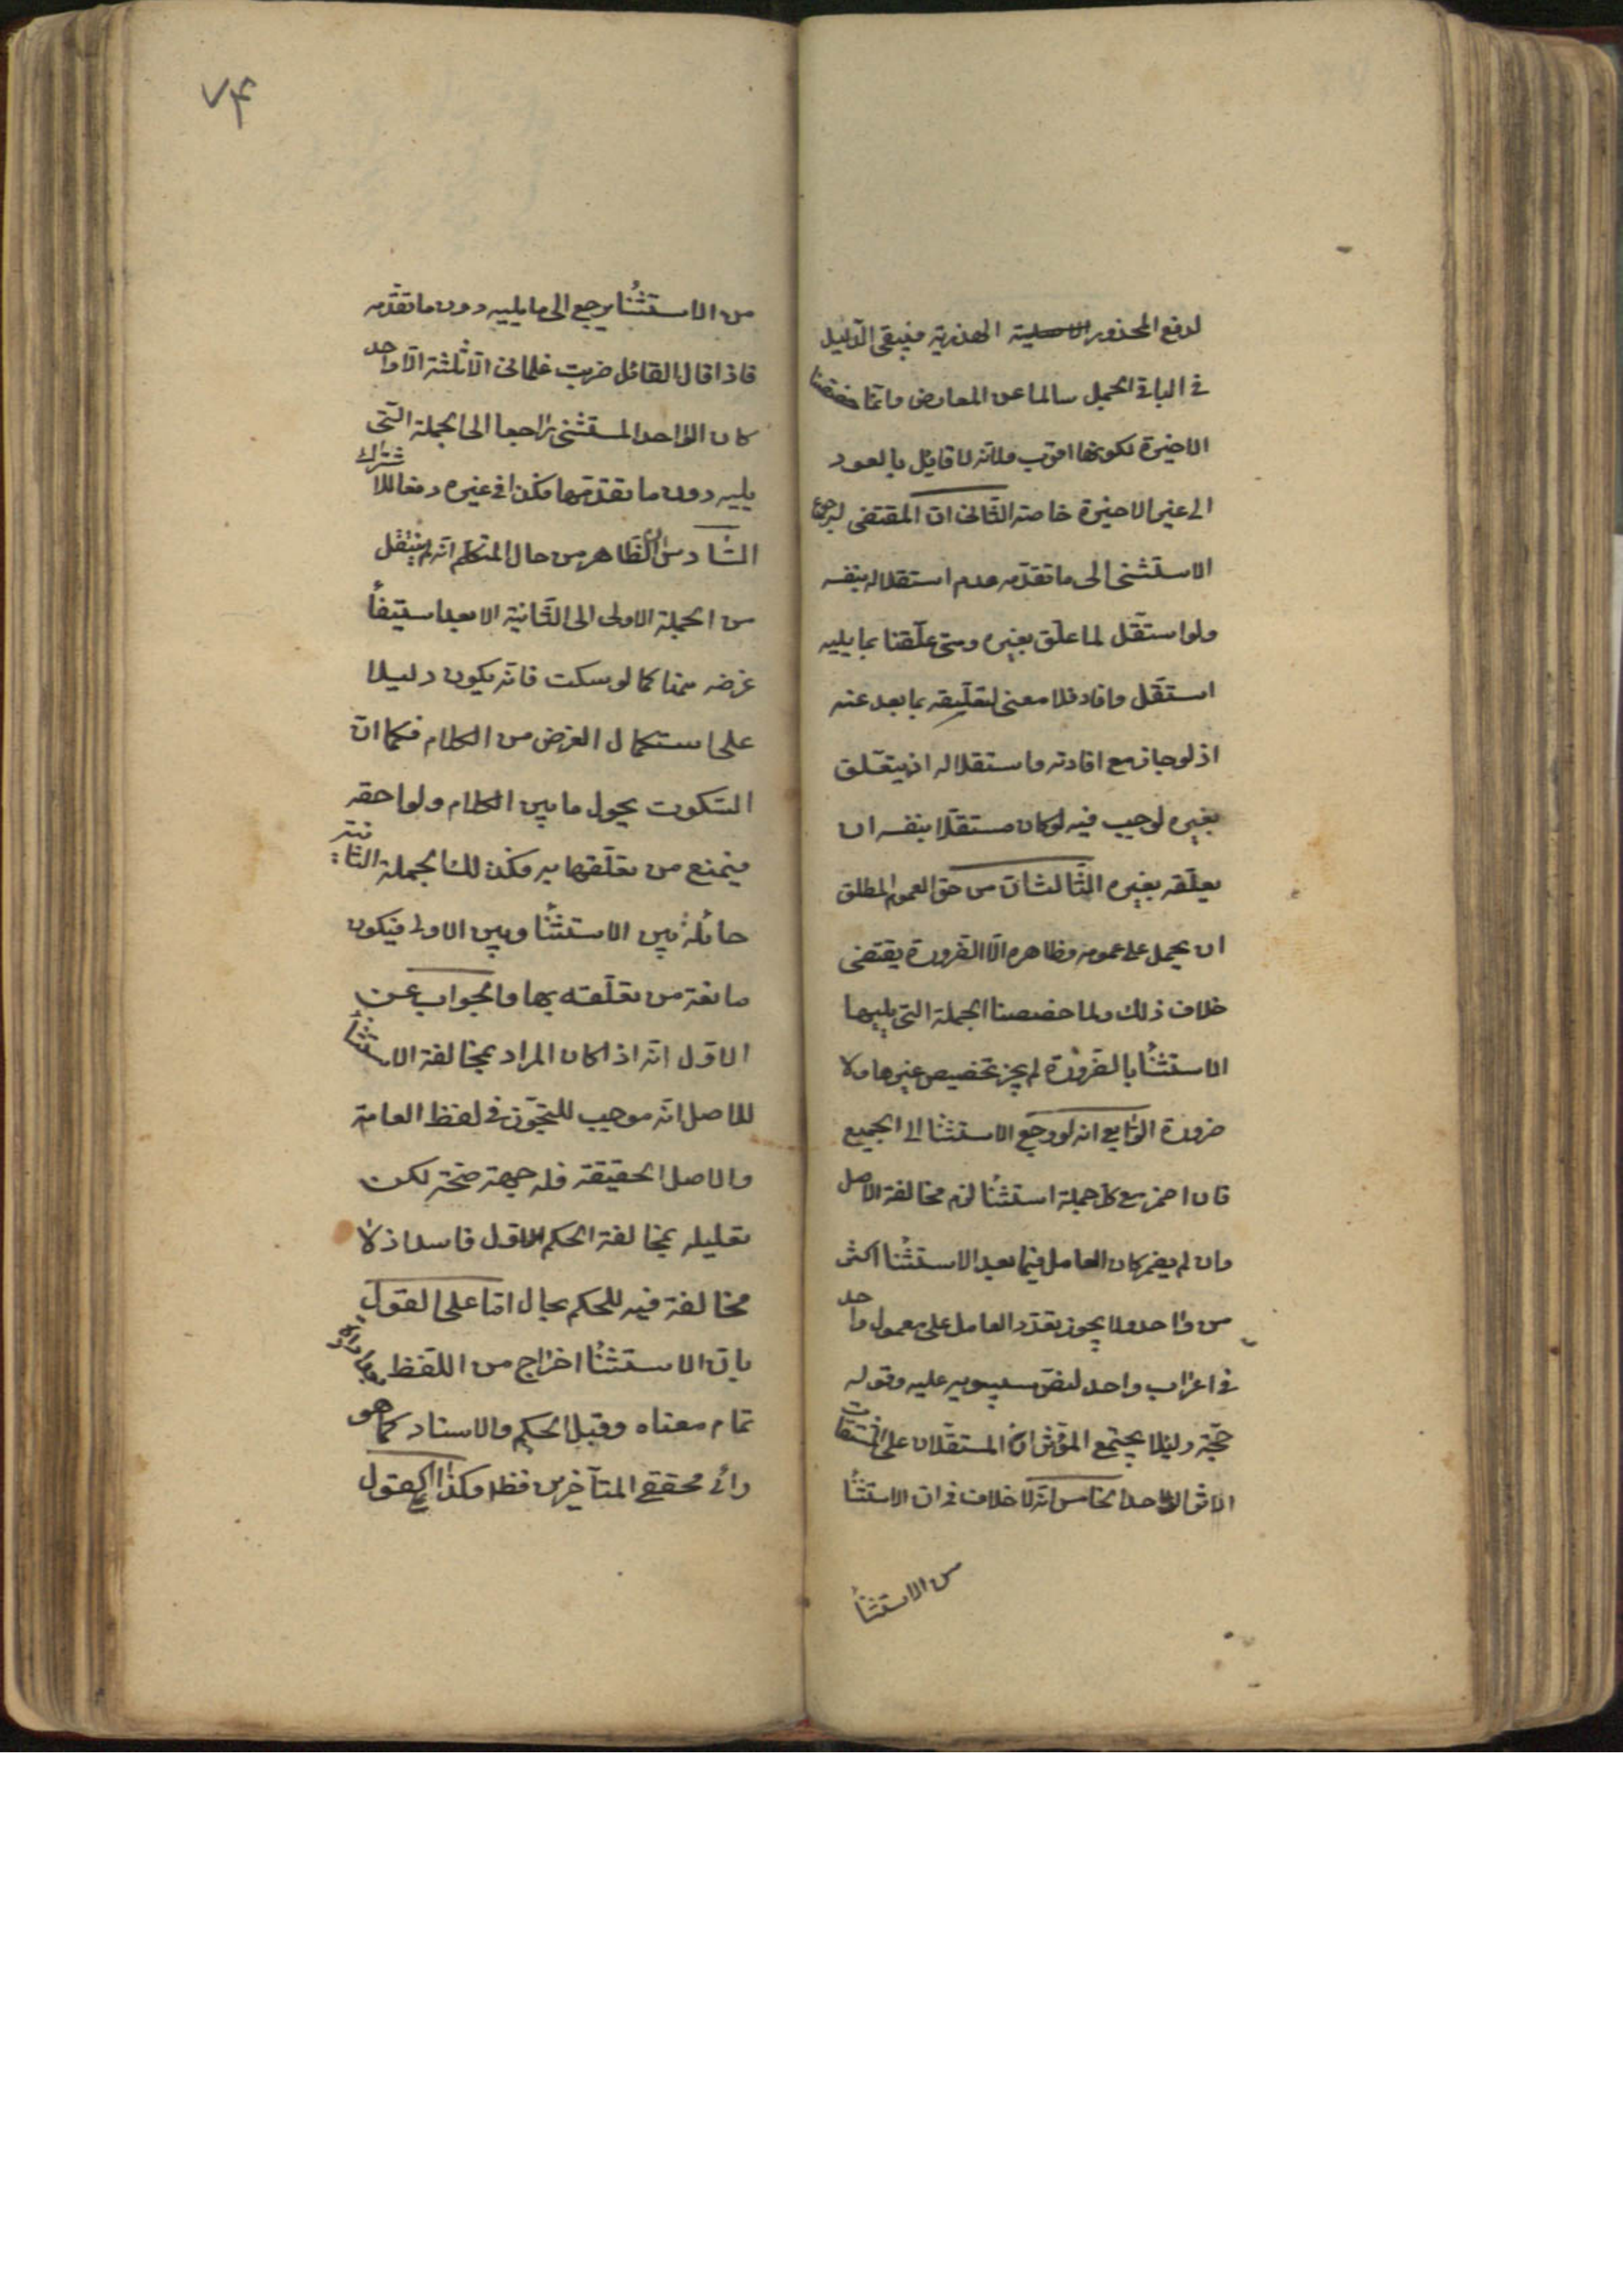 لدفع المحذور الهذرية فيبقى الدليل
في باقي الجمل سالما عن المعارض وانما خصصنا
الاخيرة لكونها اقرب ولانه لا قايل بالعود
الى غير الاخيرة خاصة الثاني ان المقتضى لرجوع
الاستثنى الى ما تقدمه عدم استقلاله بنفسه
ولو استقل لما علق بغيره ومتى علقنا بما يليه
استقل وافاد فلا معنى لتعليقه بما بعد عنه
اذ لو جاز مع افادته واستقلاله ان يتعلق
بغيره لوجب فيه لو كان مستقلا بنفسه ان
يعلقه بغيره الثالث ان من حق العموم المطلق
ان يحمل على عمومه وظاهره الا الضرورة يقتضى
خلاف ذلك ولما خصصنا الجملة التى يليها
الاستثنا بالضرورة لم يجز تخصيص غيرها ولا
ضرورة الرابع انه لو رجع الاستثنا الى الجميع
فان اضمر مع كل جملة استثنا لزم مخالفة الاصل
وان لم يضمر كان العامل فيما بعد الاستثنا اكثر
من واحد ولا يجوز تعدد العامل على معمول واحد
في اعراب واحد لنص سيبويه عليه وقوله
حجة ولئلا يجتمع المؤثران المستقلان على
الاثر الواحد الخامس انه لا خلاف في ان الاستثنا
من الاستثنا
٧۴
من الاستثنا يرجع الى ما يليه دون ما تقدمه
فاذا قال القائل ضربت غلمانى الا ثلثة الا واحد
كان الواحد المستثنى راجعا الى الجملة التى
يليه دون ما تقدمها فكذا في غيره دفعا للاشتراك
السادس ان الظاهر من حال المتكلم انه لم ينتقل
من الجملة الاولى الى الثانية الا بعد استيفأ
غرضه منها كما لو سكت فانه يكون دليلا
على استكمال الغرض من الكلام فكما ان
السكوت يحول ما بين الكلام ولواحقه
فيمنع من تعلقها به فكذلك الجملة الثانية
حائلة بين الاستثنا وبين الاولى فيكون
مانعة من تعلقه بها والجواب عن
الاول انه اذا كان المراد بمخالفة الاستثنا
للاصل انه موجب للتجوز في لفظ العامة
والاصل الحقيقة فله جهة صحة لكن
تعليله بمخالفة الحكم الاول فاسد اذ لا
مخالفة فيه للحكم بحال اما على القول
بان الاستثنا اخراج من اللفظ بعد ارادة
تمام معناه وقبل الحكم والاسناد كما هو
رائ محققي المتأخرين فظ وكذا القول